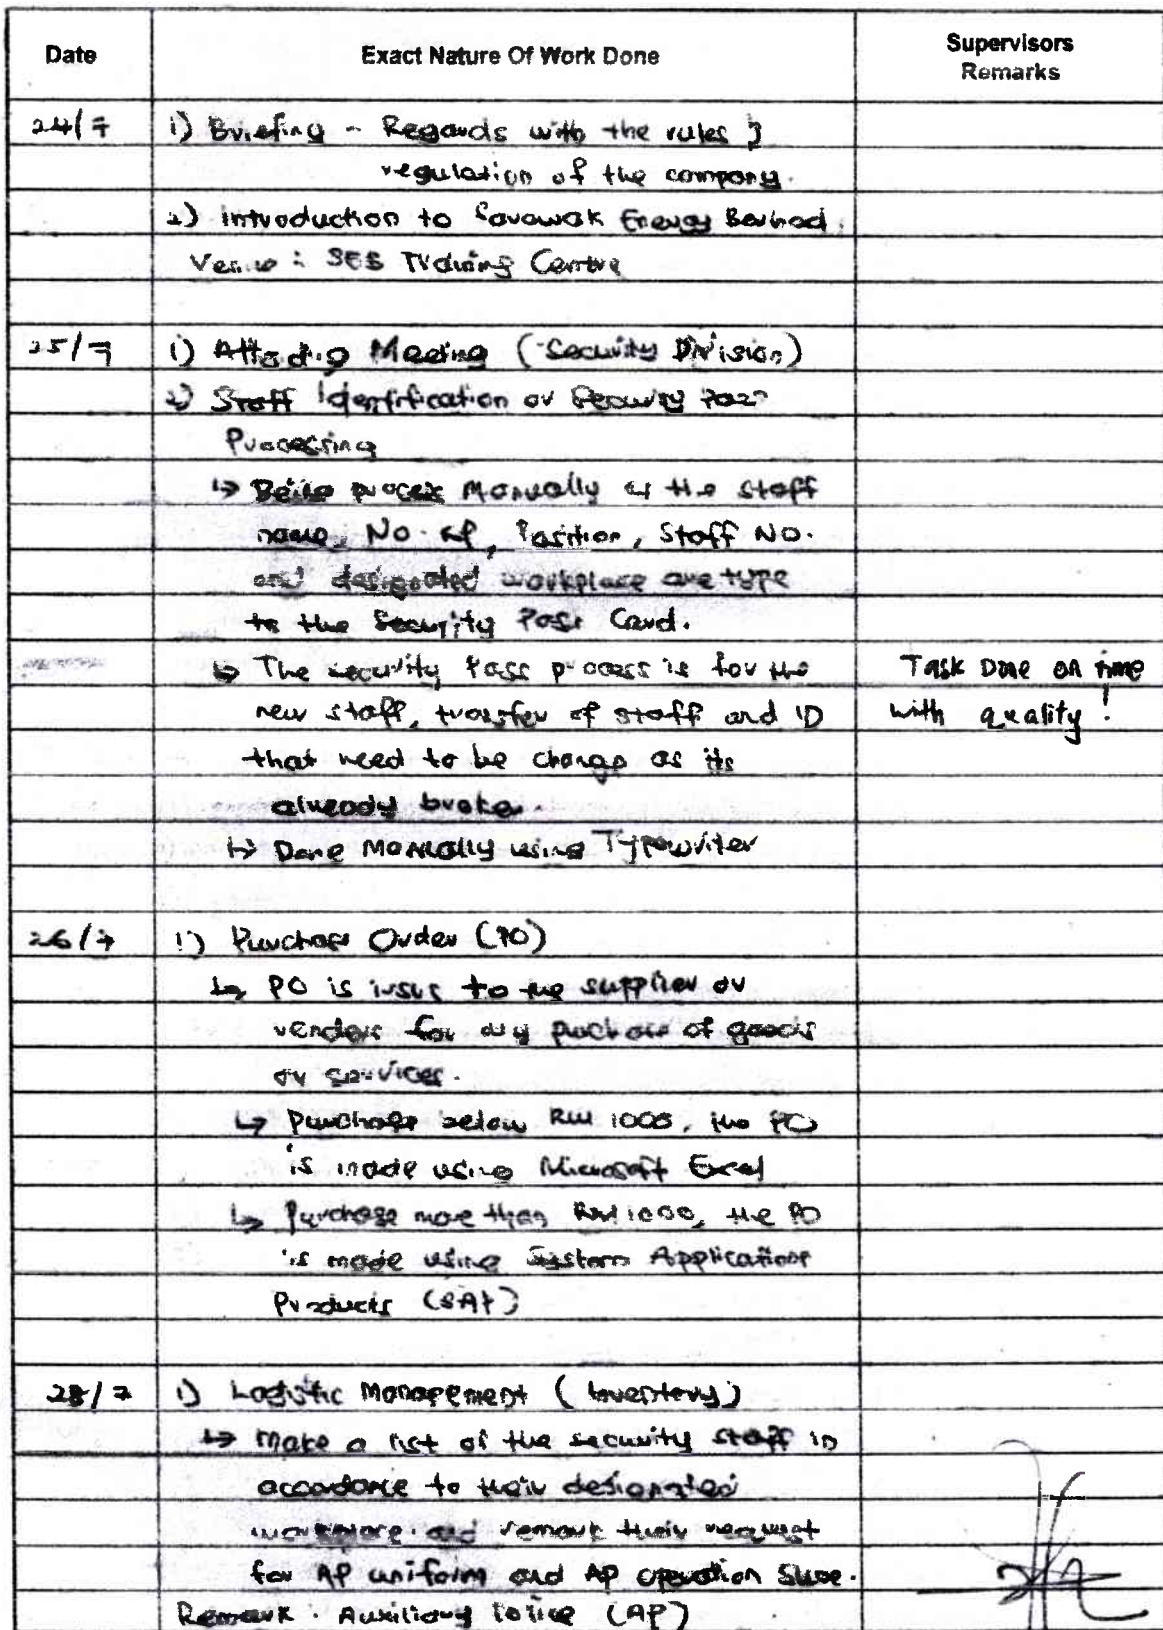 Date Exact Nature Of Work Done Supervisors Remarks
24/7 1) Briefing - Regards with the rules &
regulation of the company.
2) Introduction to Sarawak Energy Berhad
Venue : SEB Training Centre
25/7 1) Attending Meeting (Security Division)
2) Staff Identification or Security Pass
Processing
↳ Being process Manually as the staff
name, No. , Position, Staff No.
and designated workplace are type
to the Security Pass Card.
↳ The security Pass process is for the Task Done on time
new staff, transfer of staff and ID with quality!
that need to be change as its
already broke.
↳ Done Manually using Typewriter
26/7 1) Purchase Order (PO)
↳ PO is issue to the supplier or
vendors for any purchase of goods
or services.
↳ Purchase below RM 1000, the PO
is made using Microsoft Excel
↳ Purchase more than RM 1000, the PO
is made using System Applications
Products (SAP)
28/7 1) Logistic Management (Inventory)
↳ Make a list of the security staff in
accordance to their designated
workplace and remark their request
for AP uniform and AP operation Shoe.
Remark : Auxiliary Police (AP)